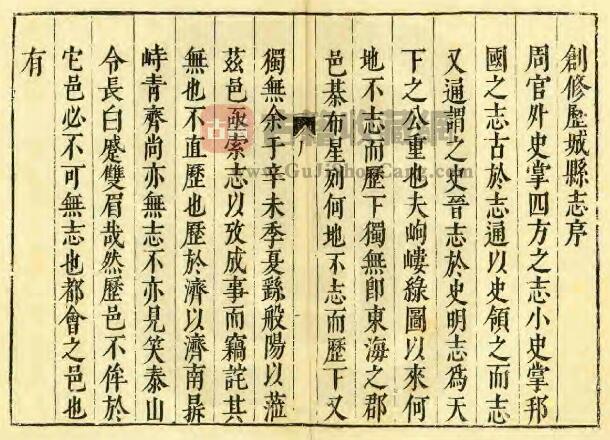 創修歷城縣志序
周官外史掌四方之志小史掌邦
國之志古於志通以史領之而志
又通謂之史晉志於史明志爲天
下之公重也夫峋嶁綠圖以來何
地不志而歷下獨無卽東海之郡
邑碁布星列何地不志而歷下又
獨無余于辛未季夏繇般陽以蒞
茲邑亟索志以攷成事而竊詫其
無也不直歷也歷於濟以濟南㬥
峙青齊尚亦無志不亦見笑泰山
令長白蹙雙眉哉然歷邑不侔於
它邑必不可無志也都會之邑也
有
www.GuJiShouCang.com